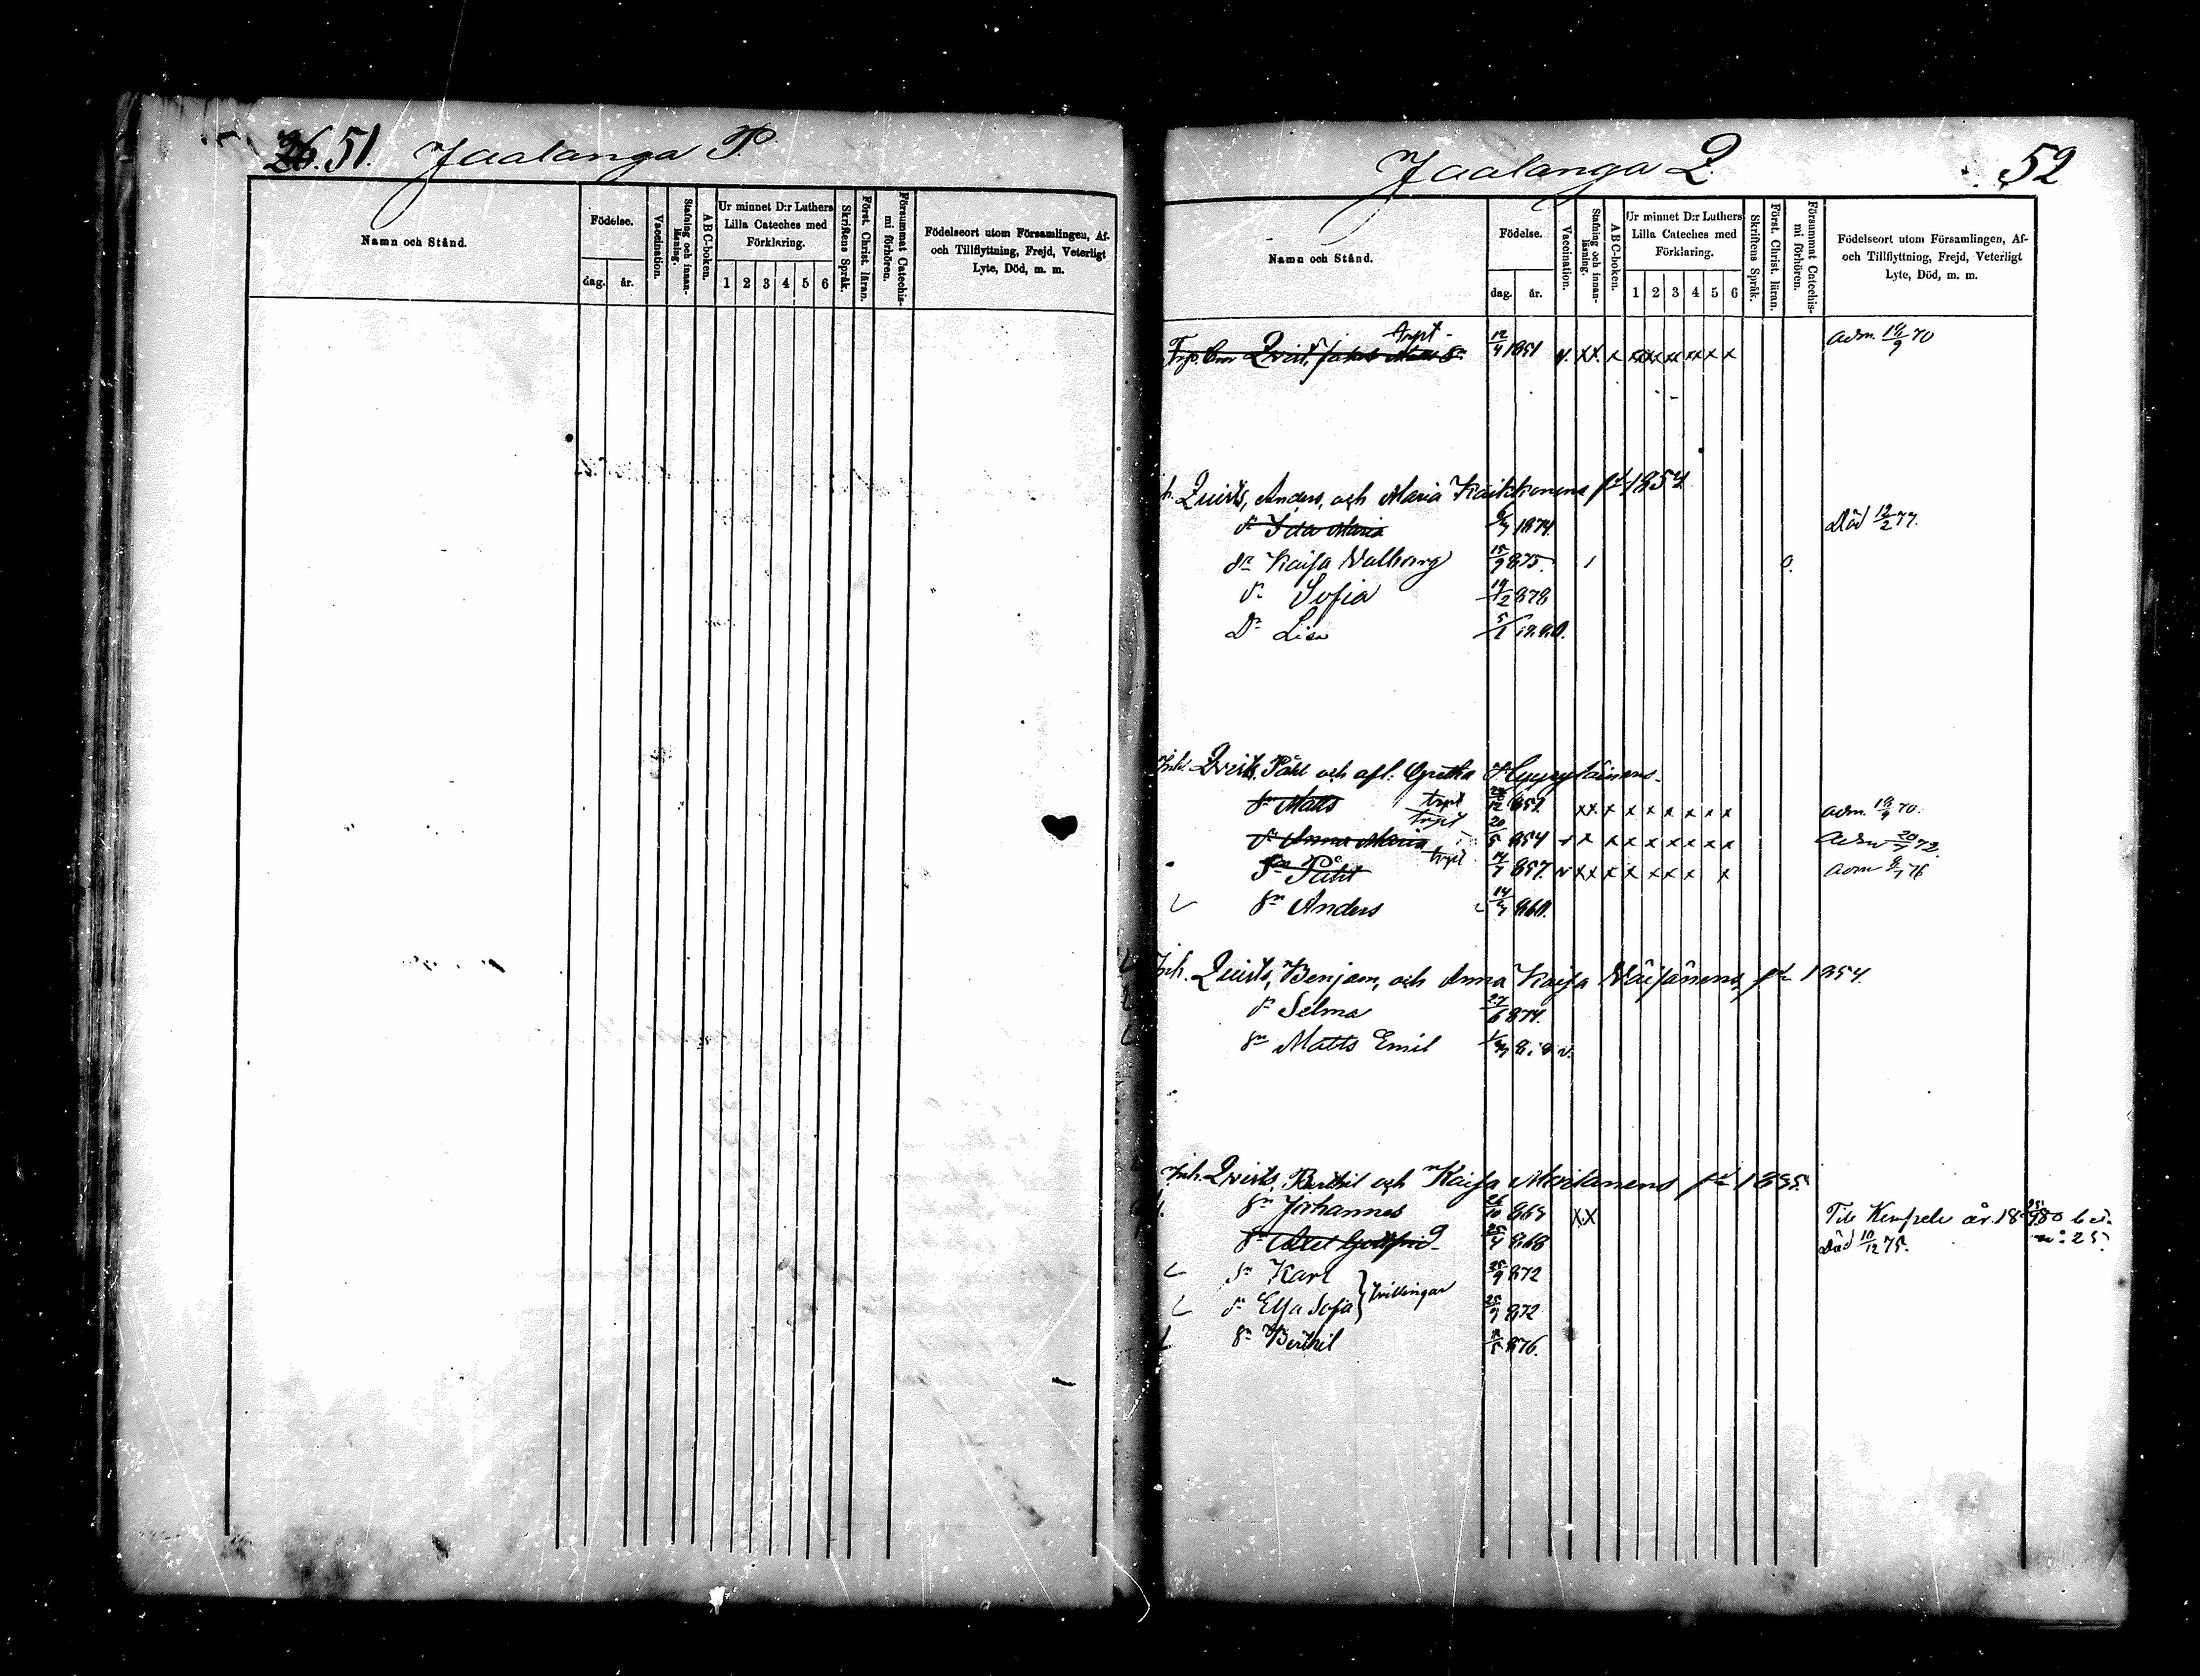 26. 51. Jaalanga P.
Namn och Stånd.
Födelse.
dag. år.
Vaccination.
Stafning och innanläsning.
ABC-boken.
Ur minnet D:r Luthers Lilla Cateches med Förklaring.
1 2 3 4 5 6
Skriftens Språk.
Först. Christ. läran.
Försummat Catechismi förhören.
Födelseort utom Församlingen, Af- och Tillflyttning, Frejd, Veterligt Lyte, Död, m. m.
Jaalanga Q. 52
Namn och Stånd.
Födelse.
dag. år.
Vaccination.
Stafning och innanläsning.
ABC-boken.
Ur minnet D:r Luthers Lilla Cateches med Förklaring.
1 2 3 4 5 6
Skriftens Språk.
Först. Christ. läran.
Försummat Catechismi förhören.
Födelseort utom Församlingen, Af- och Tillflyttning, Frejd, Veterligt Lyte, Död, m. m.
Qvist, 12/4 1851 v. xx. x adm. 18/9 70
Quists, Anders, och Maria Kaikkonens 1854
dr Ida Maria 1874. Död 12/2 77.
dr Kaisa Valborg 15/9 875. 0.
dr Sofia 19/2 878
Dr Lisa 5/1 1880.
Inh. Qvists, Påhl och afl. Gretha Hyyryläinens
sn Matts trpt xx x x x x x x x adm. 18/9 70.
dr Anna Maria trpt 20/5 854 x x x x x x x x adm 72.
sn Påhl trpt 857. v xx x x x x x x adm 76
sn Anders 860.
Inh. Quists, Benjam, och Anna Kaisa Väisänens, 1854.
dr Selma 27/6 874.
sn Matts Emil v.
Inh. Qvists, Berthil och Kaisa 1855.
sn Johannes 26/10 865 xx Till Kempele år
sn Gottfrid 25/4 868 Död 10/12 75.
sn Karl 25/9 872
dr Elsa Sofia } tvillingar 25/9 872
sn Berthil 876.